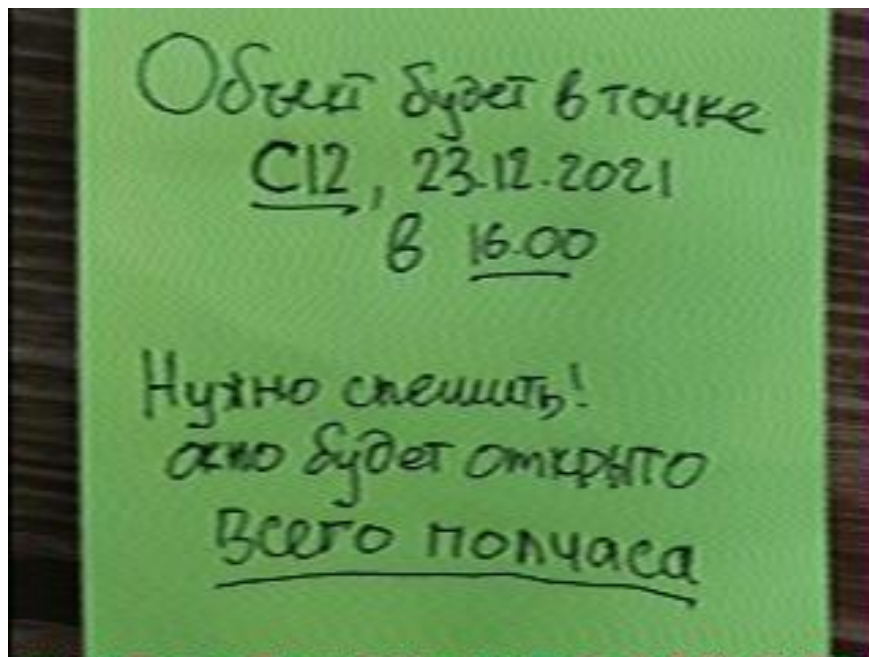 Объект будет в точке
С12, 23.12.2021
в 16.00
Нужно спешить!
окно будет открыто
всего полчаса